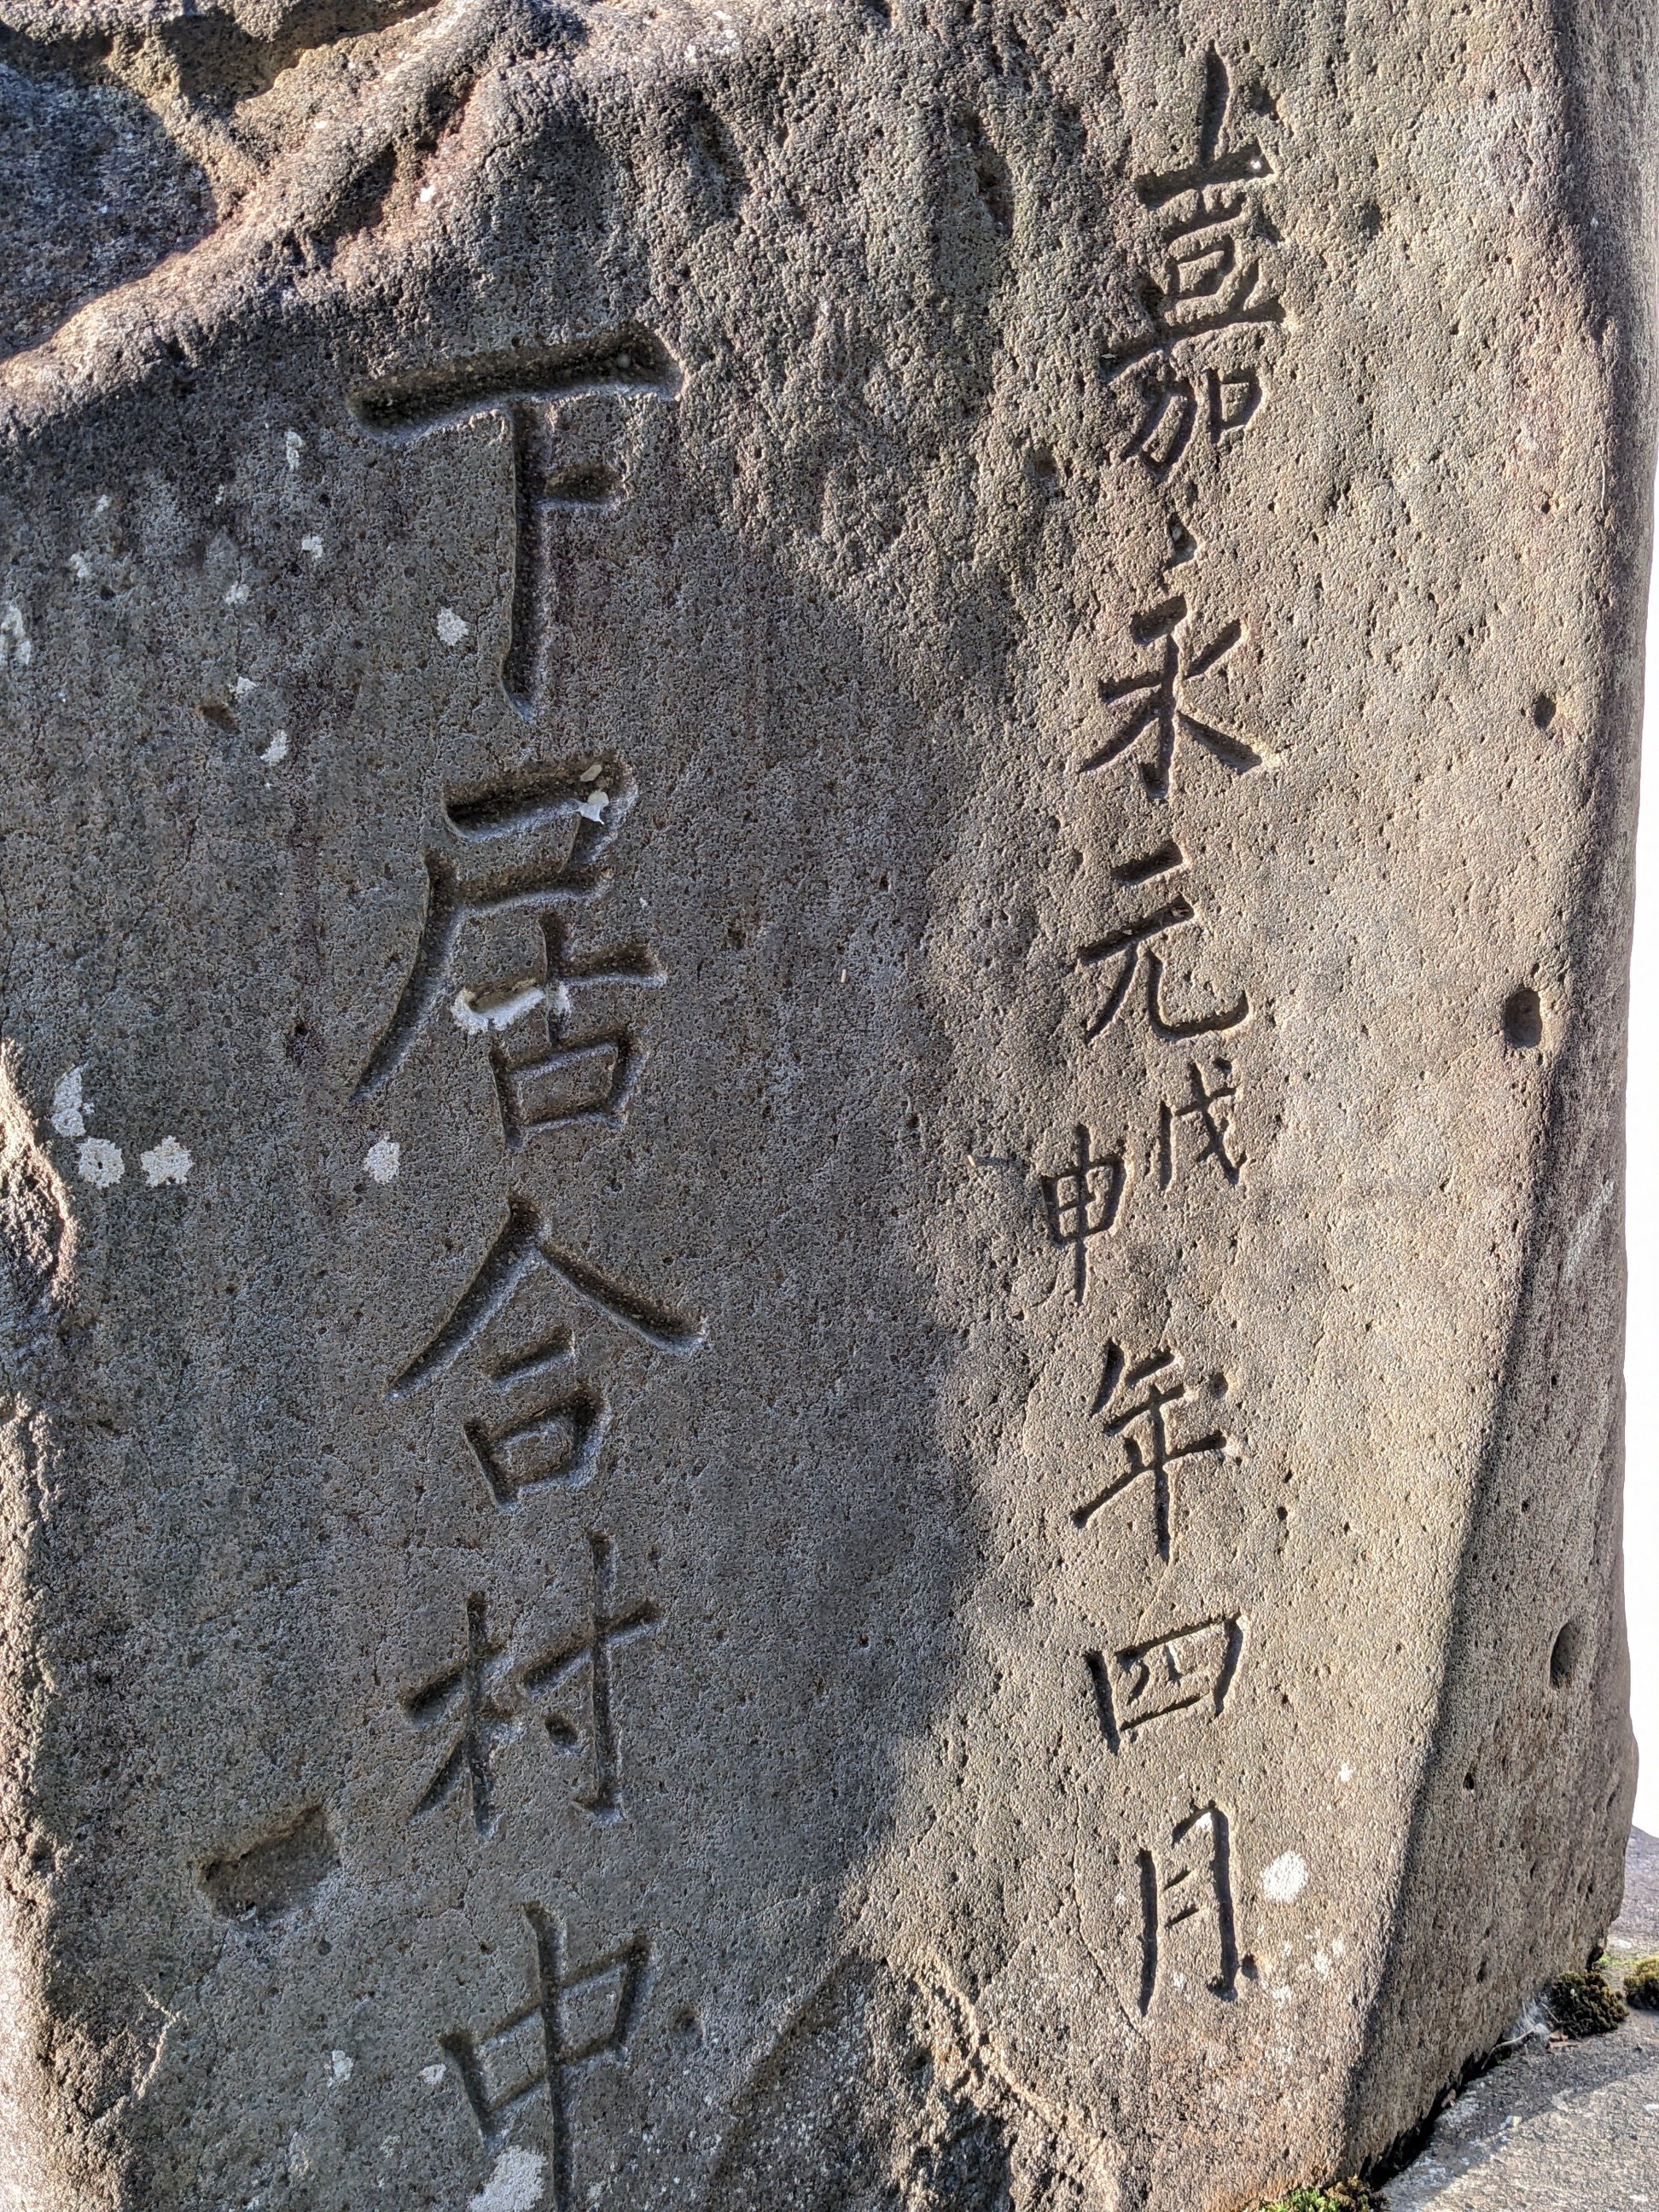 嘉永元戊申年四月
下居合村中